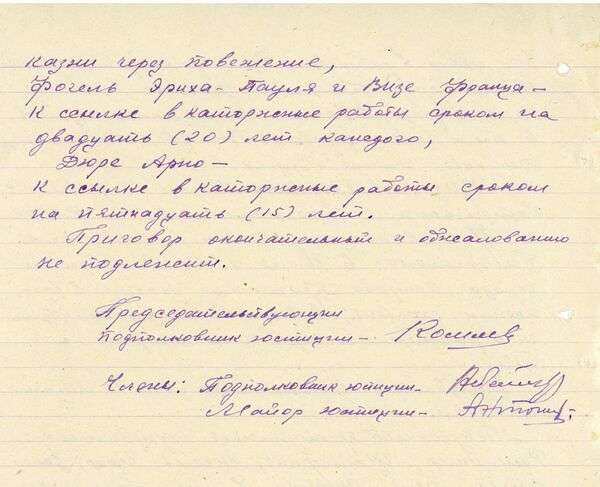 казни через повешение,
Фогель Эриха-Пауля и Визе Франца –
к ссылке в каторжные работы сроком на
двадцать (20) лет каждого,
Дюре Арно –
к ссылке в каторжные работы сроком
на пятнадцать (15) лет.
Приговор окончательный и обжалованию
не подлежит.
Председательствующий
подполковник юстиции –
Члены: Подполковник юстиции –
Майор юстиции –